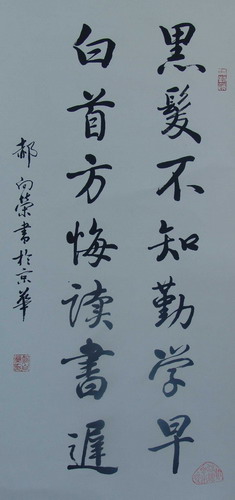 黑髮不知勤学早
白首方悔读書遲
郝向榮書於京華